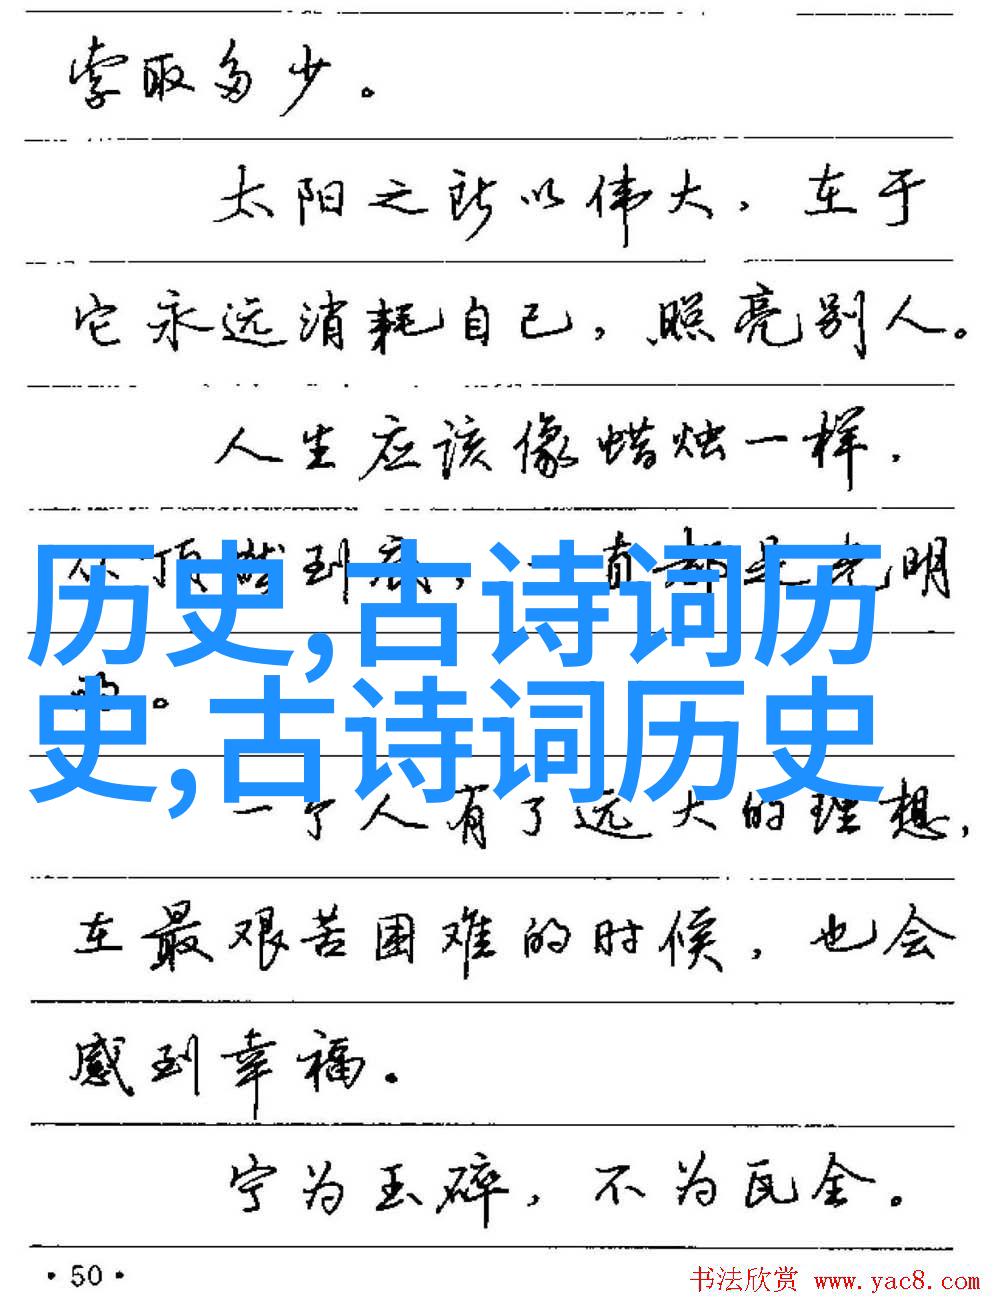 索取多少。
太阳之所以伟大，在于
它永远消耗自己，照亮别人。
人生应该像蜡烛一样，
从顶燃到底，一直都是光明
的。
历史,古诗词历
史,古诗词历史
一个人有了远大的理想，
在最艰苦困难的时候，也会
感到幸福。
宁为玉碎，不为瓦全。
·50·
书法欣赏 www.yac8.com